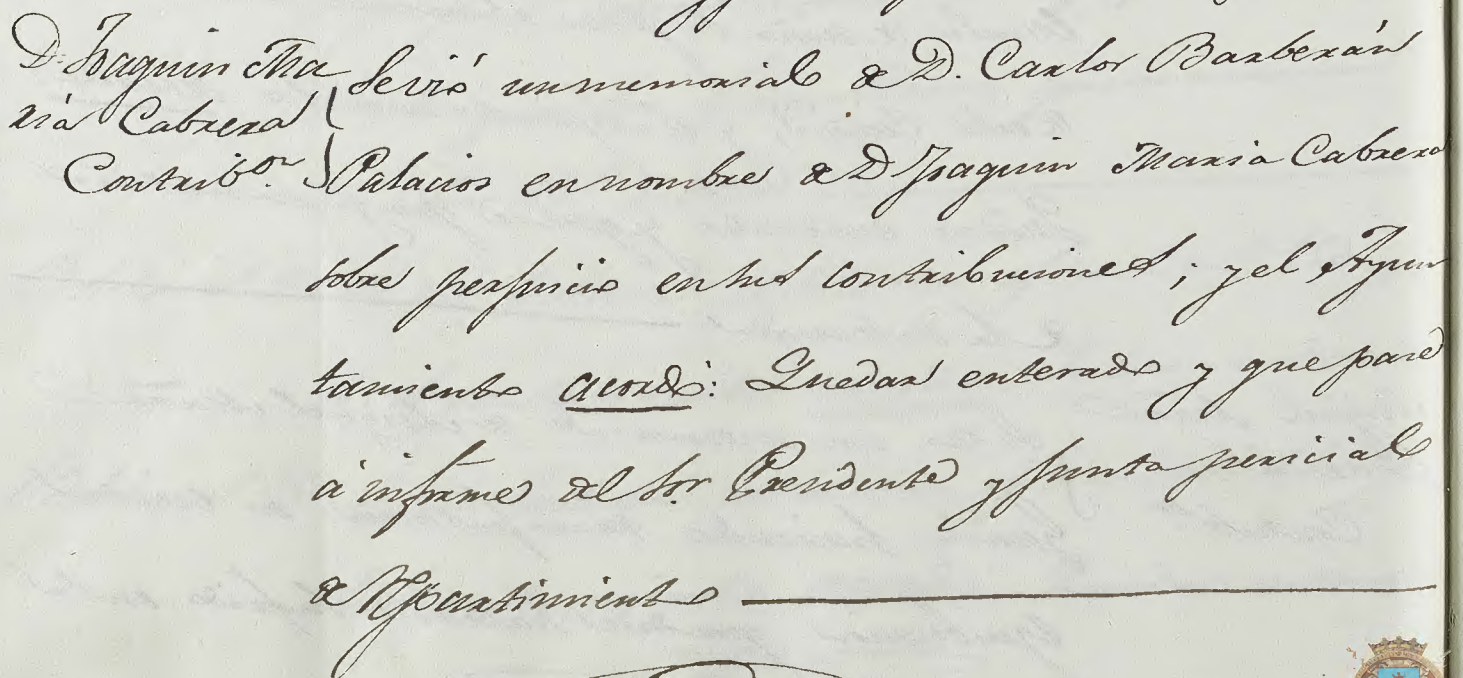 D. Joaquin Ma
ria Cabrera
Contribor.
Se vió un memorial de D. Carlos Barberán
Palacios en nombre de D Joaquin Maria Cabrera
sobre perjuicio en sus contribuciones; y el Ayun
tamiento acordó: Quedar enterado y que pase
á informe del Sor. Presidente y Junta pericial
de Repartimiento